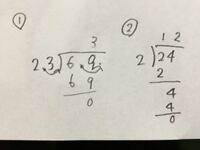 ①
3
2.3 6.9.
6 9
0
②
1 2
2 24
2
4
4
0